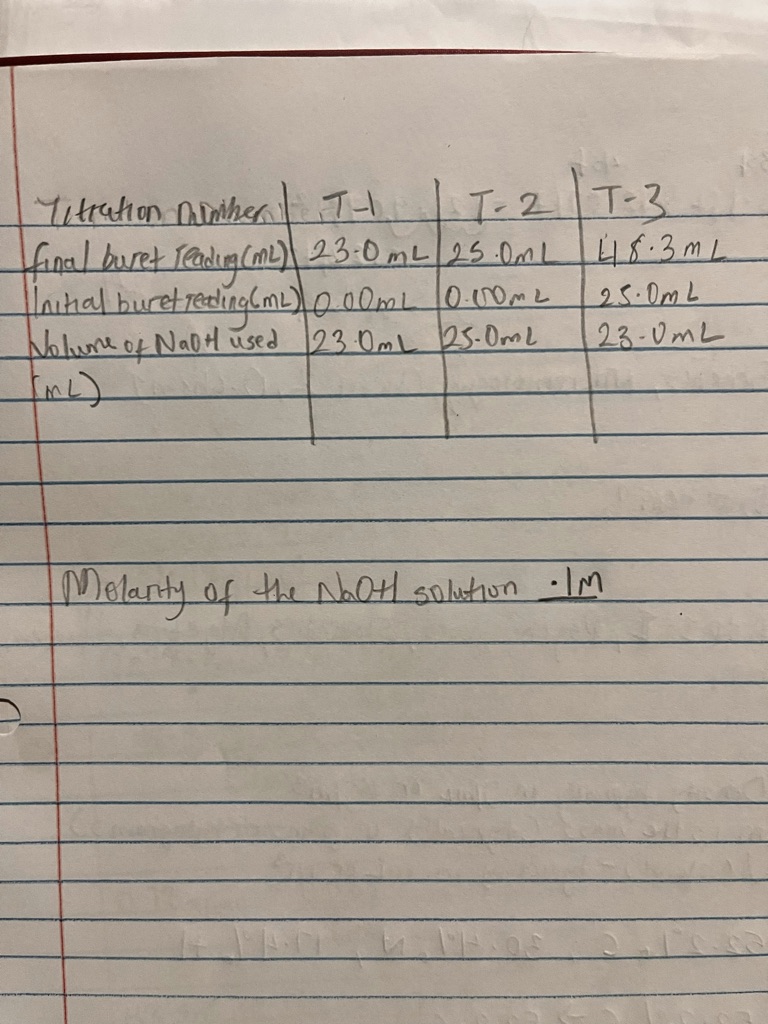 Titration number T-1 T-2 T-3
final buret reading(mL) 23.0mL 25.0mL 48.3mL
Initial buret reading(mL) 0.00mL 0.00mL 25.0mL
Volume of NaOH used 23.0mL 25.0mL 23.0mL
(mL)
Molarity of the NaOH solution .1M